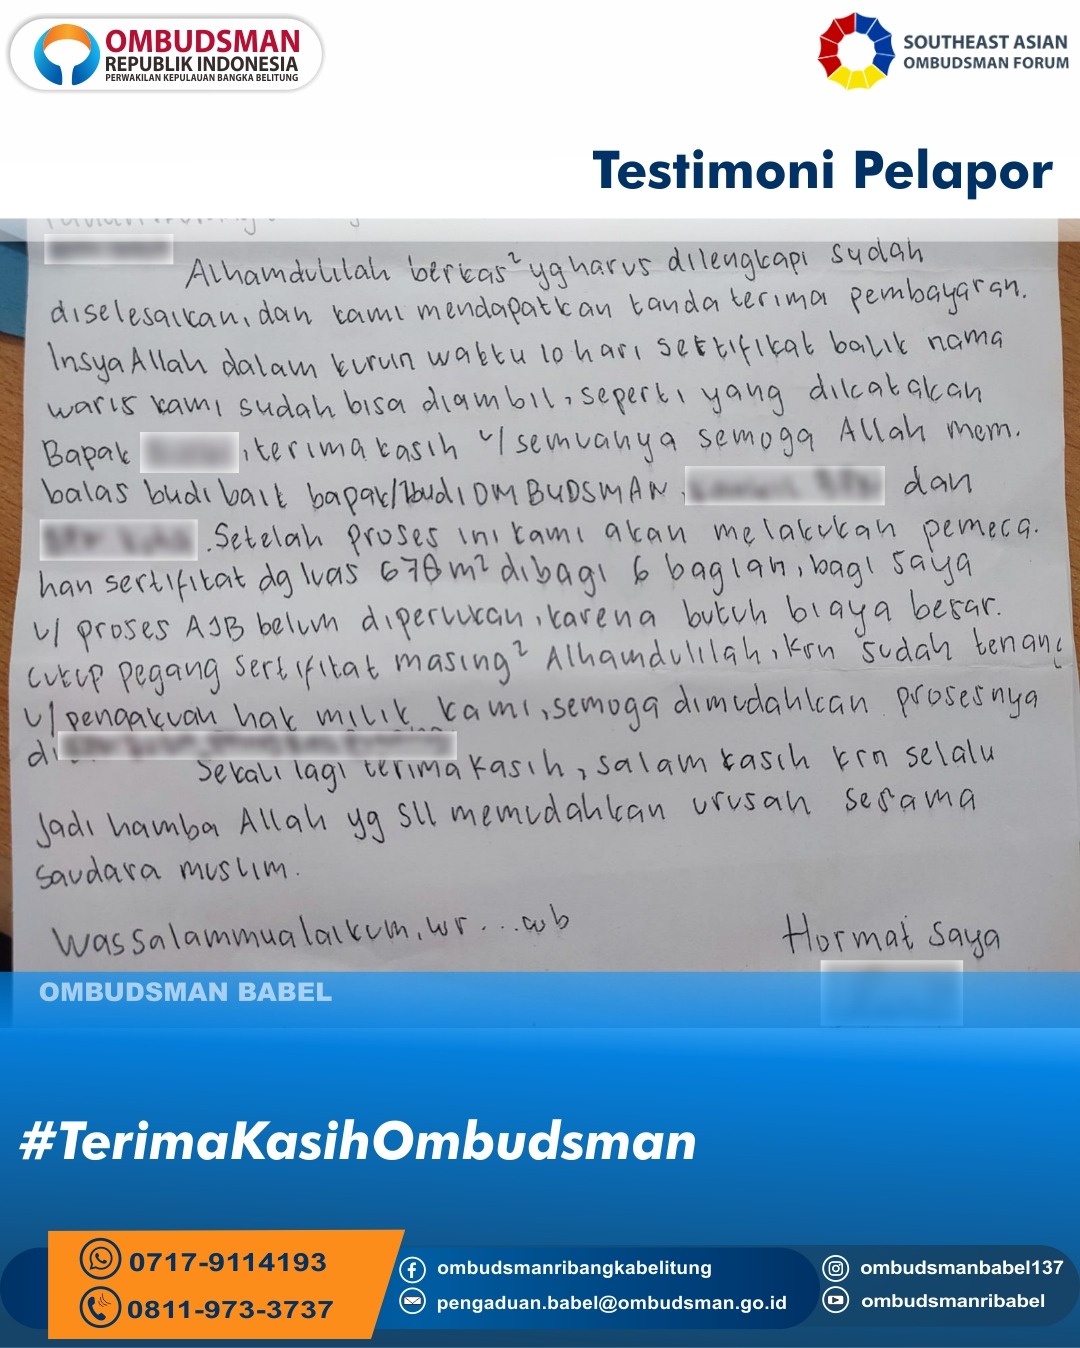 OMBUDSMAN
REPUBLIK INDONESIA
PERWAKILAN KEPULAUAN BANGKA BELITUNG
SOUTHEAST ASIAN
OMBUDSMAN FORUM
Testimoni Pelapor
Alhamdulilah berkas² yg harus dilengkapi sudah
diselesaikan, dan kami mendapatkan tanda terima pembayaran.
Insya Allah dalam kurun waktu 10 hari sertifikat balik nama
waris kami sudah bisa diambil, seperti yang dikatakan
Bapak , terima kasih u/ semuanya semoga Allah mem.
balas budi baik bapak/Ibudi OMBUDSMAN, dan
. Setelah proses ini kami akan melakukan pemeca.
han sertifikat dg luas 678 m² dibagi 6 bagian, bagi saya
u/ proses AJB belum diperlukan, karena butuh biaya besar.
cukup pegang sertifikat masing² Alhamdulilah, krn sudah tenang
u/ pengakuan hak milik kami, semoga dimudahkan prosesnya
di
Sekali lagi terima kasih, salam kasih krn selalu
jadi hamba Allah yg sll memudahkan urusan sesama
saudara muslim.
Wassalammualaikum, wr...wb
Hormat saya
OMBUDSMAN BABEL
#TerimaKasihOmbudsman
0717-9114193
0811-973-3737
ombudsmanribangkabelitung
pengaduan.babel@ombudsman.go.id
ombudsmanbabel137
ombudsmanribabel